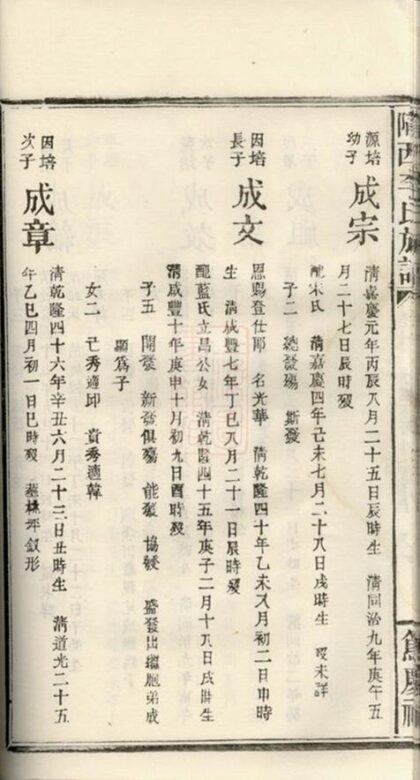 隴西李氏族譜
源培
幼子
成宗
清嘉慶元年丙辰八月二十五日辰時生 清同治九年庚午五
月二十七日辰時歿
配宋氏 清嘉慶四年己未七月二十八日戌時生 歿未詳
子二 總發殤 斯發
因培
長子
成文
恩賜登仕郎 名光華 清乾隆四十年乙未八月初二日申時
生 清咸豐七年丁巳八月二十一日辰時歿
配藍氏立昌公女 清乾隆四十五年庚子二月十八日戌時生
清咸豐十年庚申十月初九日酉時歿
子五 開發 新發俱殤 能發 協發 盛發出繼胞弟成
顯為子
女二 己秀適邱 貴秀適韓
因培
次子
成章
清乾隆四十六年辛丑六月二十三日丑時生 清道光二十五
年乙巳四月初一日巳時歿 葬 坪 形